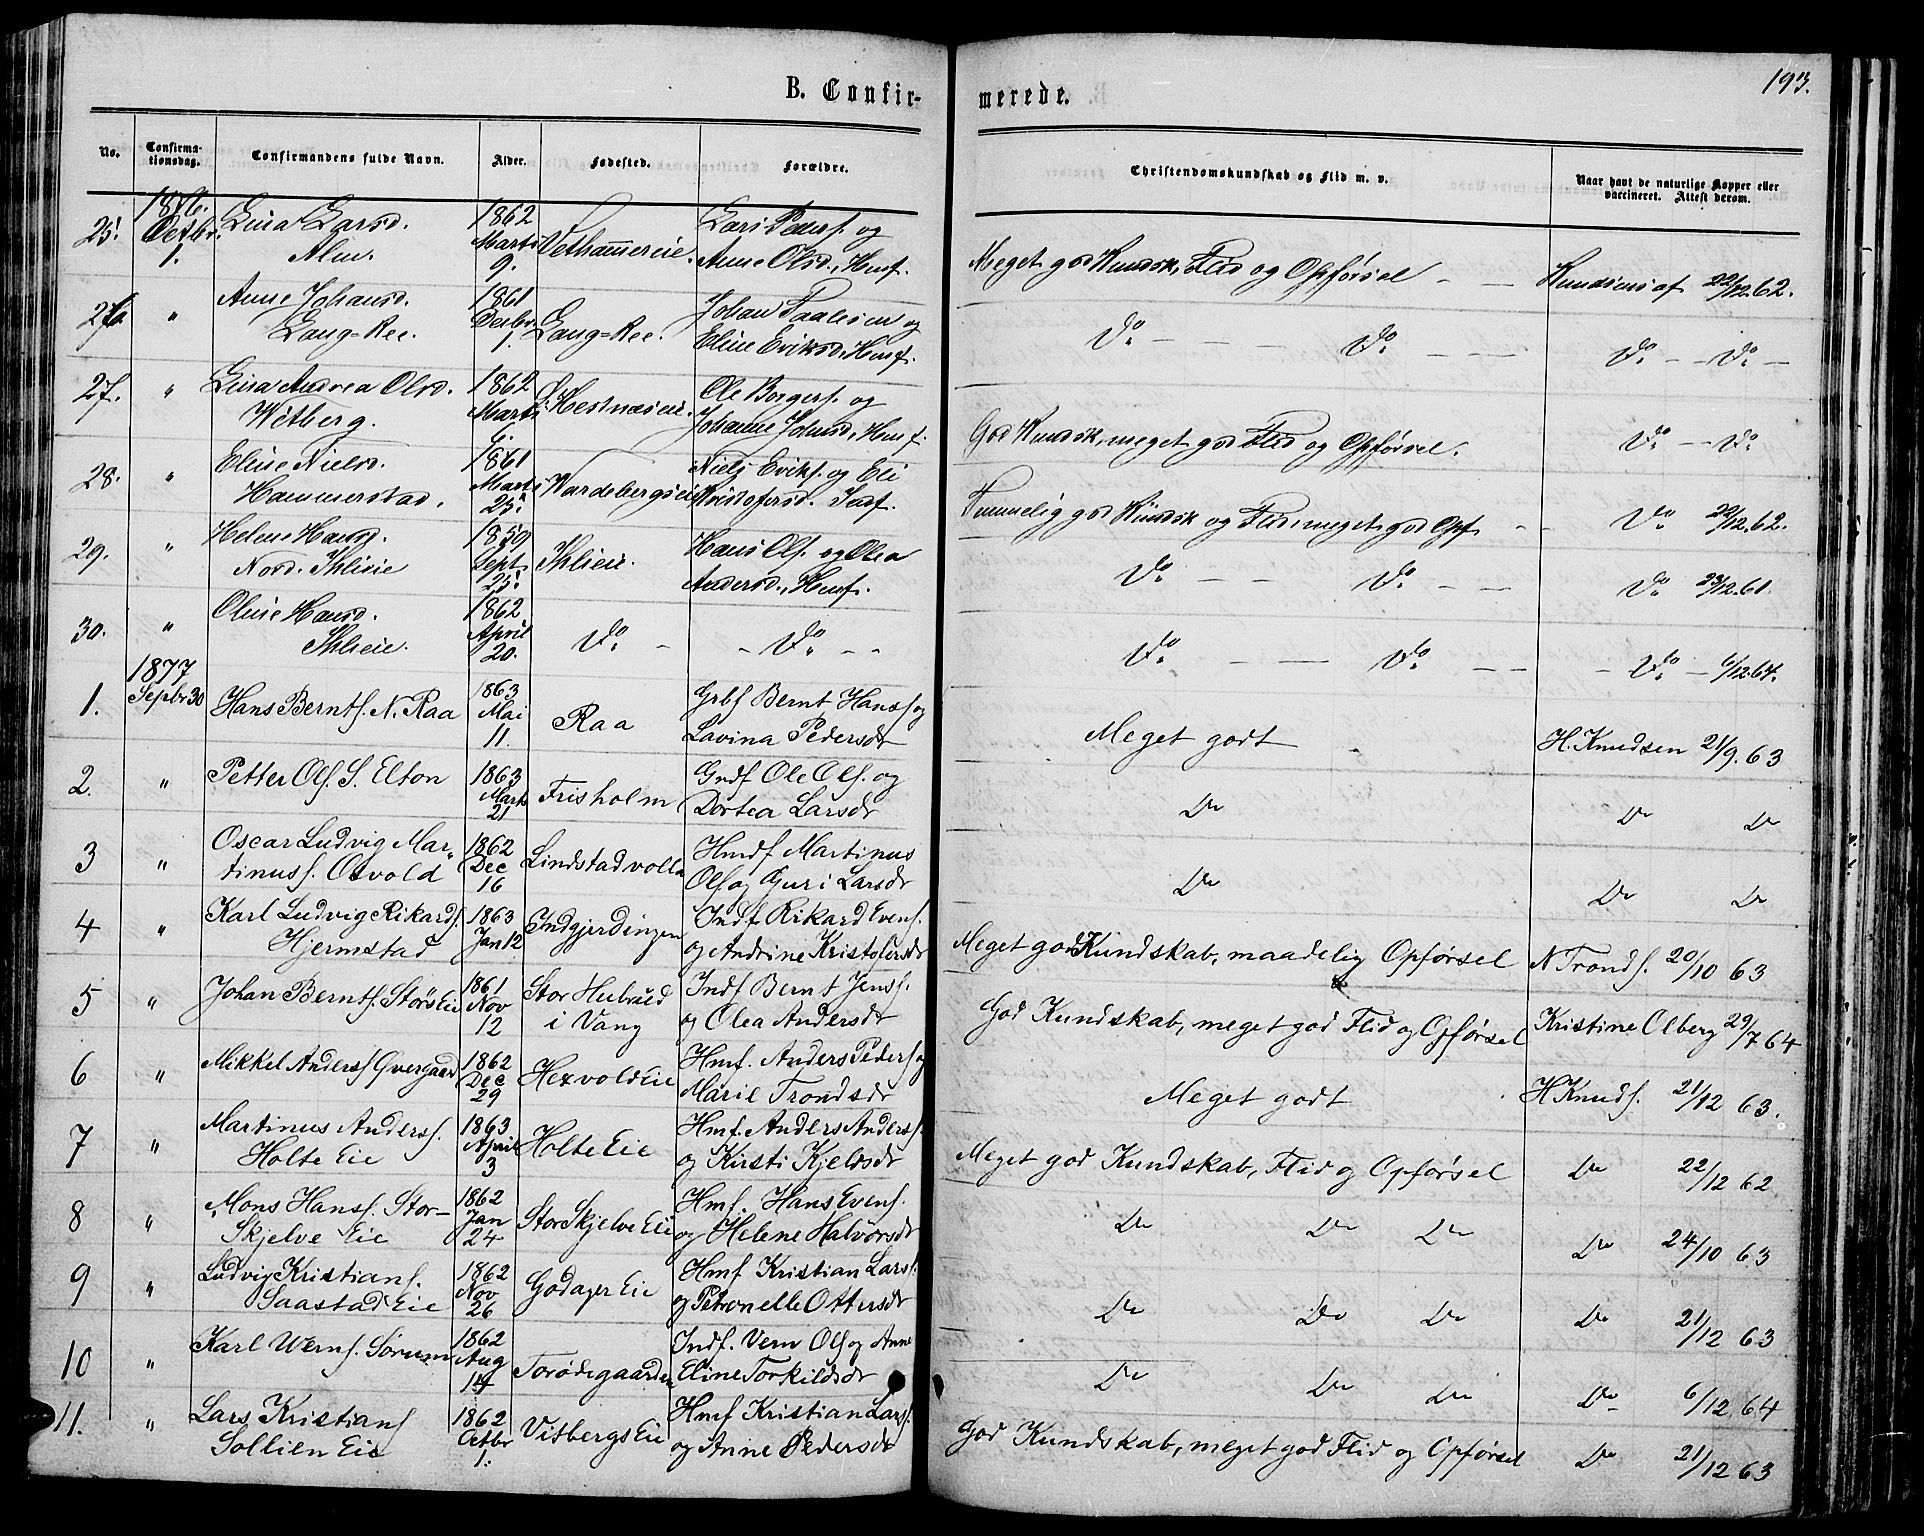 B. Confir-
merede.
193.
No.
Confirma-
tionsdag.
Confirmandens fulde Navn.
Alder.
Fødested.
Forældre.
Christendomskundskab og Flid m. v.
Naar havt de naturlige Kopper eller
vaccineret. Attest derom.
1876.
25. Octbr. 1.
Lina Larsd.
Alm.
1862
Marts
9.
Vethammereie.
Lars Peders. og
Anne Olsd., Hmf.
Meget god Kundsk, Flid og Opførsel
Knudsens af 22/12.62.
26. "
Anne Johansd.
Lang-Ree.
1861
Decbr
1.
Lang-Ree.
Johan Paalsen og
Eline Eriksd., Hmf.
Do Do
Do Do
27. "
Lina Andrea Olsd.
Witberg.
1862
Marts
6.
Ø. Hestnæseie.
Ole Borgers. og
Johanne Johnsd., Hmf.
God Kundsk, meget god Flid og Opførsel.
Do Do
28. "
Eline Nielsd.
Hammerstad.
1861
Marts
25.
Wardebergseie
Niels Eriks. og Eli
Kristofersd. Indf.
Temmelig god Kundsk og Flid, meget god Opf.
Do 22/12.62.
29. "
Helene Hansd.
Nord. Ihlseie
1859
Sept
25.
Ihlseie.
Hans Ols. og Olea
Andersd., Hmf.
Do Do
Do 23/12.61.
30. "
Oline Hansd.
Ihlseie.
1862
April
20.
Do
Do
Do Do
Do 6/12.64.
1877
1. Sepbr 30
Hans Bernts. N. Raa
1863
Mai
11.
Raa
Grbf Bernt Hanss og
Lavina Pedersdr
Meget godt
H. Knudsen 21/9. 63
2. "
Petter Ols. S. Elton
1863
Marts
21
Frisholm
Grdf Ole Ols. og
Dortea Larsdr
Do
Do Do
3 "
Oscar Ludvig Mar-
tinuss. Osvold
1862
Dec
16
Lindstadvolla
Hmdf Martinus
Ols og Guri Larsdr
Do
Do Do
4 "
Karl Ludvig Rikards.
Hjermstad
1863
Jan 12
Indgjerdingen
Indf Rikard Evens.
og Andrine Kristofersdr
Meget god Kundskab, maadelig Opførsel
N Tronds. 20/10 63
5 "
Johan Bernts. Störs Eie
1861
Nov
12
Stor Hubrued
i Vang
Indf Bernt Jenss.
og Olea Andersdr
God Kundskab, meget god Flid og Opførsel
Kristine Olberg 29/7 64
6 "
Mikkel Anderss Øvergaard
1862
Dec
29
Hexvold Eie
Hmf. Anders Peders og
Marie Trondsdr
Meget godt
H Knuds. 21/12 63.
7 "
Martinus Anderss.
Holte Eie
1863
April
3
Holte Eie
Hmf. Anders Anderss.
og Kirsti Kjeldsdr
Meget god Kundskab, Flid og Opførsel
Do 22/12 62
8 "
Mons Hanss. Stor-
Skjelve Eie
1862
Jan
24
Stor Skjelve Eie
Hmf. Hans Evens.
og Helene Halvorsdr
Do Do Do
Do 24/10 63
9 "
Ludvig Kristians.
Saastad Eie
1862
Nov
26
Godager Eie
Hmf Kristian Larss.
og Petronelle Ottersdr
Do Do Do
Do 21/12 63
10 "
Karl Werns. Sørum
1862
Aug
14
Torødegaarden
Indf. Vern Ols og Anne
Eline Torkildsdr
Do Do Do
Do 6/12 64
11. "
Lars Kristians
Sollien Eie
1862
Octbr
1.
Vitbergs Eie
Hmf Kristian Larss.
og Anne Pedersdr
God Kundskab, meget god Flid og Opførsel
Do 21/12 63